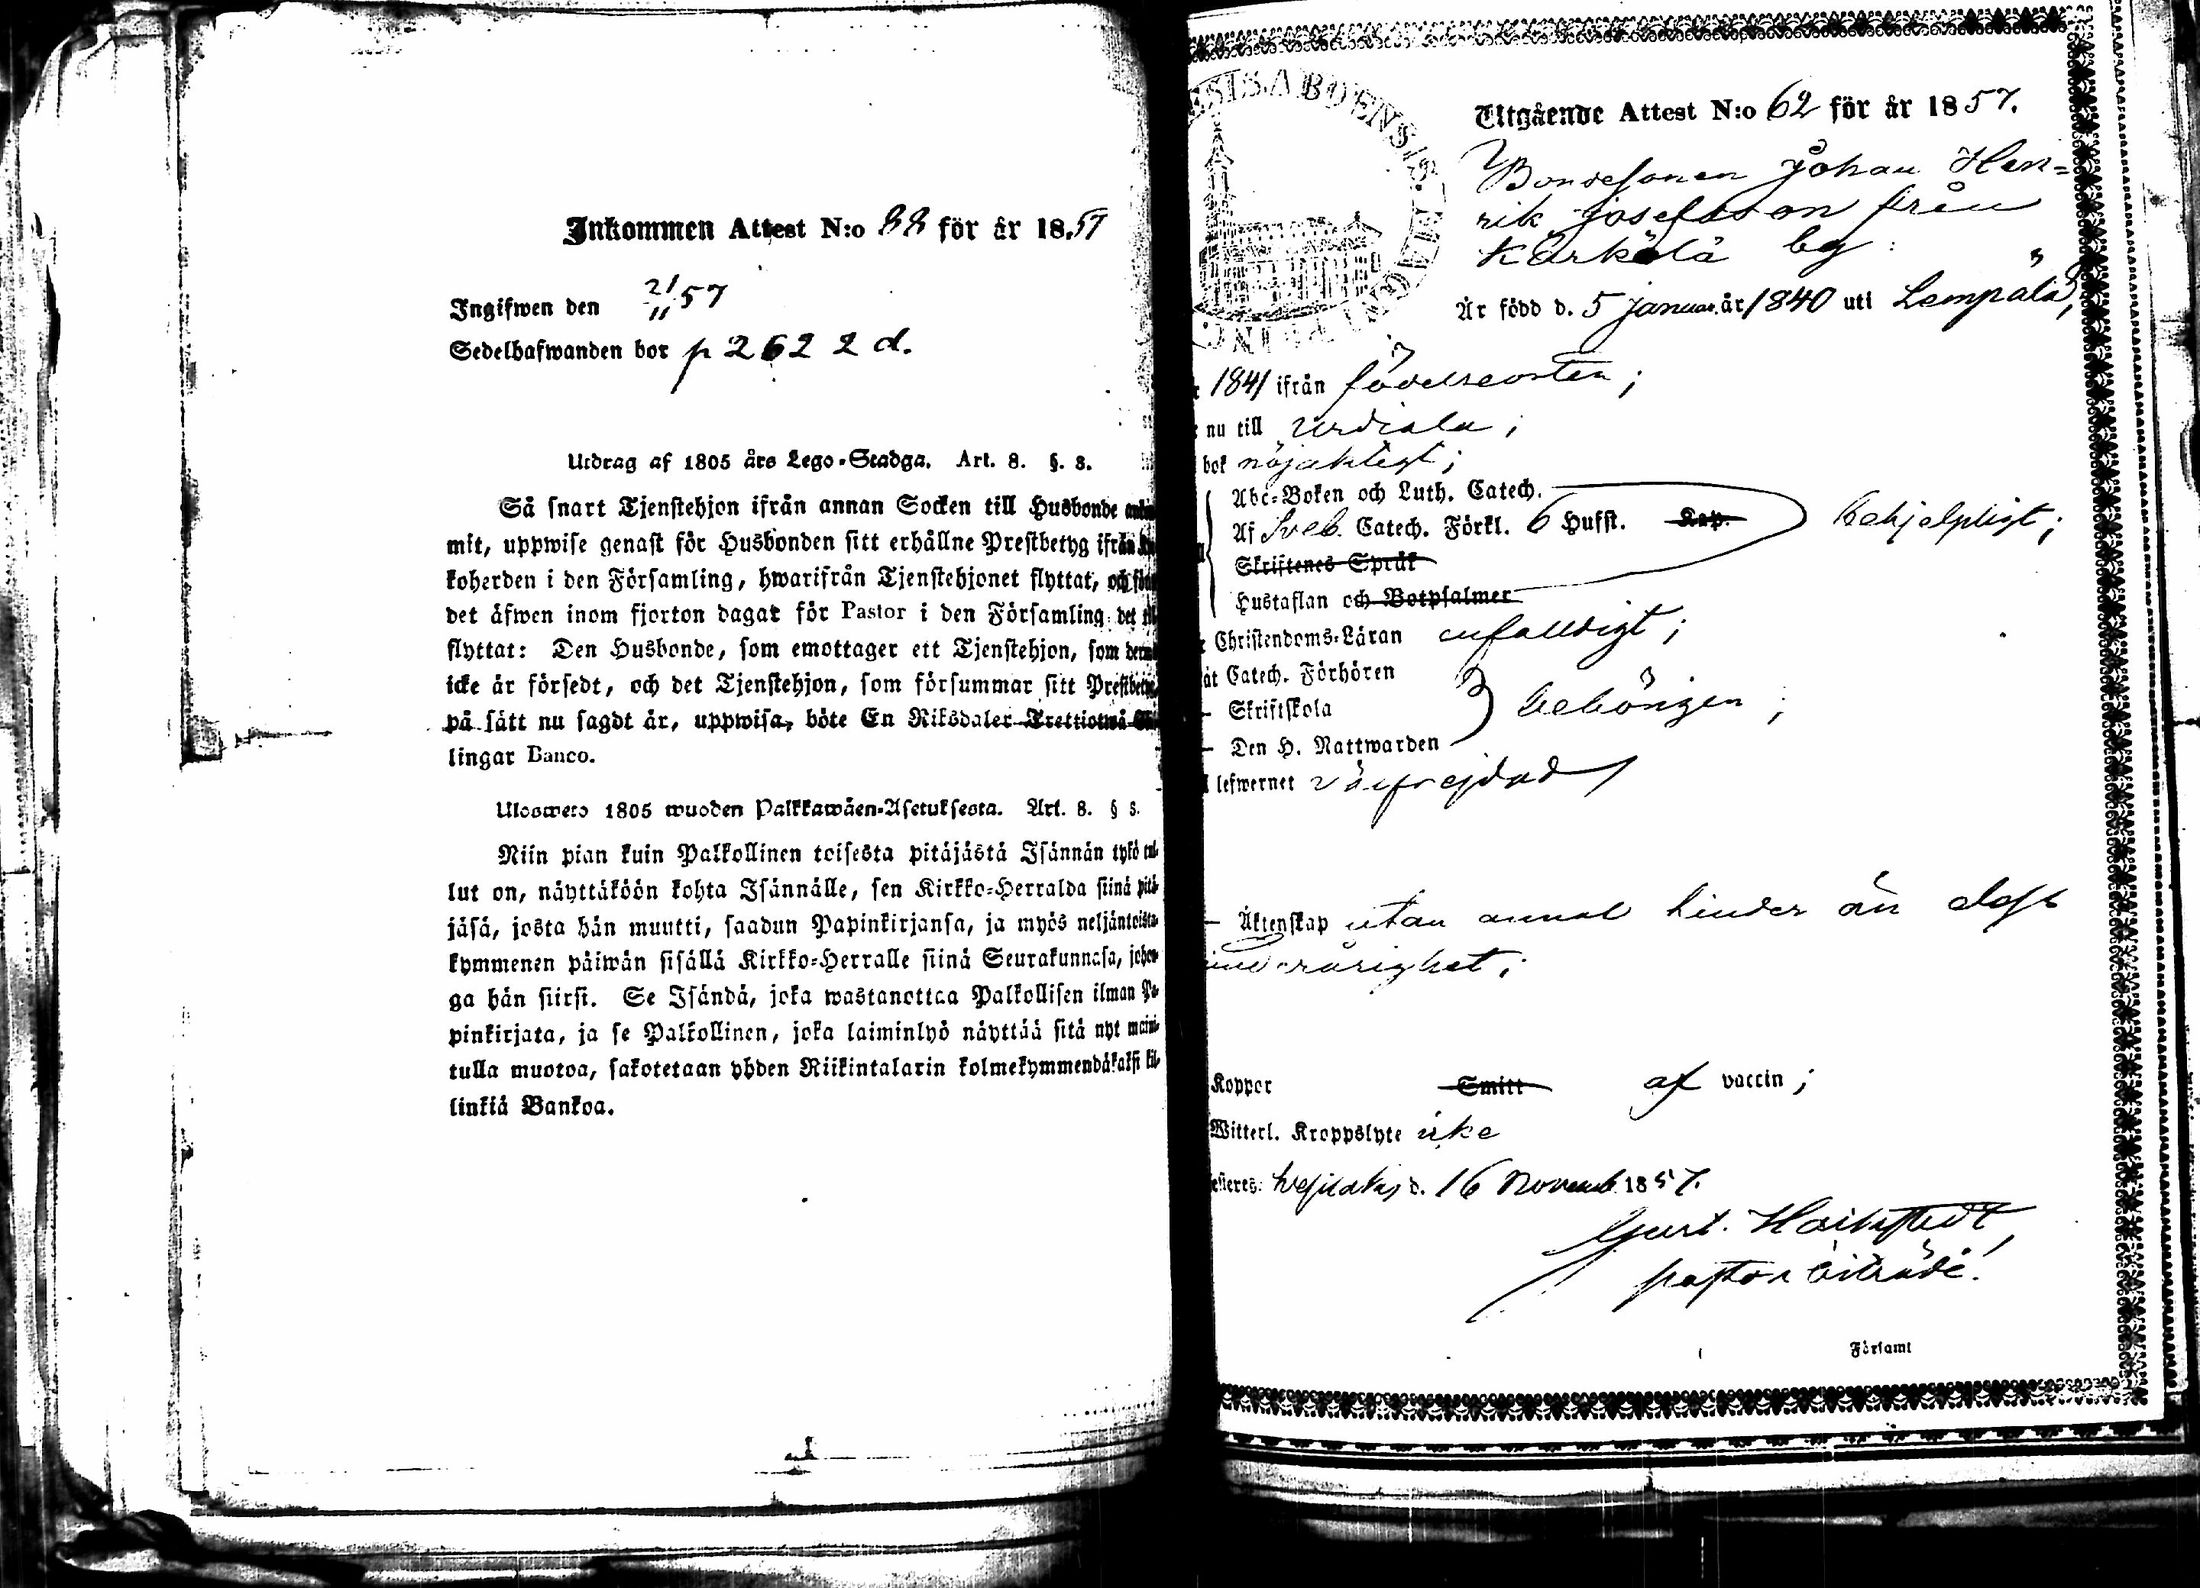 Inkommen Attest N:o 88 för år 1857
Ingifwen den 21/11 57
Sedelhafwanden bor p 262 2 d.
Utdrag af 1805 års Lego-Stadga. Art. 8. §. 8.
Så snart Tjenstehjon ifrån annan Socken till Husbonde
mit, uppwise genast för Husbonden sitt erhållne Prestbetyg ifrån
koherden i den Församling, hwarifrån Tjenstehjonet flyttat, och
det äfwen inom fjorton dagar för Pastor i den Församling det
flyttat: Den Husbonde, som emottager ett Tjenstehjon, som
icke är försedt, och det Tjenstehjon, som försummar sitt Prestbetyg
på sätt nu sagdt är, uppwisa, böte En Riksdaler Trettiotwå
lingar Banco.
Ulosweto 1805 wuoden Palkkawäen-Asetuksesta. Art. 8. § 8.
Niin pian kuin Palkollinen toisesta pitäjästä Isännän tykö tul-
lut on, näyttäköön kohta Isännälle, sen Kirkko-Herralda siinä pitä-
jäsä, josta hän muutti, saadun Papinkirjansa, ja myös neljäntoista-
kymmenen päiwän sisällä Kirkko-Herralle siinä Seurakunnasa, johon-
ga hän siirsi. Se Isändä, joka wastanottaa Palkollisen ilman Pa-
pinkirjata, ja se Palkollinen, joka laiminlyö näyttää sitä nyt maini-
tulla muotoa, sakotetaan yhden Riikintalarin kolmekymmendäkaksi kil-
linkiä Bankoa.
Utgående Attest N:o 62 för år 1857.
Bondesonen Johan Hen=
rik Josefsson från
Kärkölä by
Är född d. 5 Januar. år 1840 uti Lempälä,
1841 ifrån födelseorten;
nu till Urdiala;
bok nöjaktigt;
Abc-Boken och Luth. Catech.
Af Sveb. Catech. Förkl. 6 Hufst. Kap. behjelpligt;
Skriftenes Språk
Hustaflan och Botpsalmer
Christendoms-Läran enfalldigt;
åt Catech. Förhören
Skriftskola behörigen;
Den H. Nattwarden
lefwernet välfrejdad
Äktenskap utan annat hinder än dess
underårighet;
Koppor Smitt af vaccin;
Witterl. Kroppslyte icke
d. 16 Novemb. 1857.
pastorsbiträde.
Församl